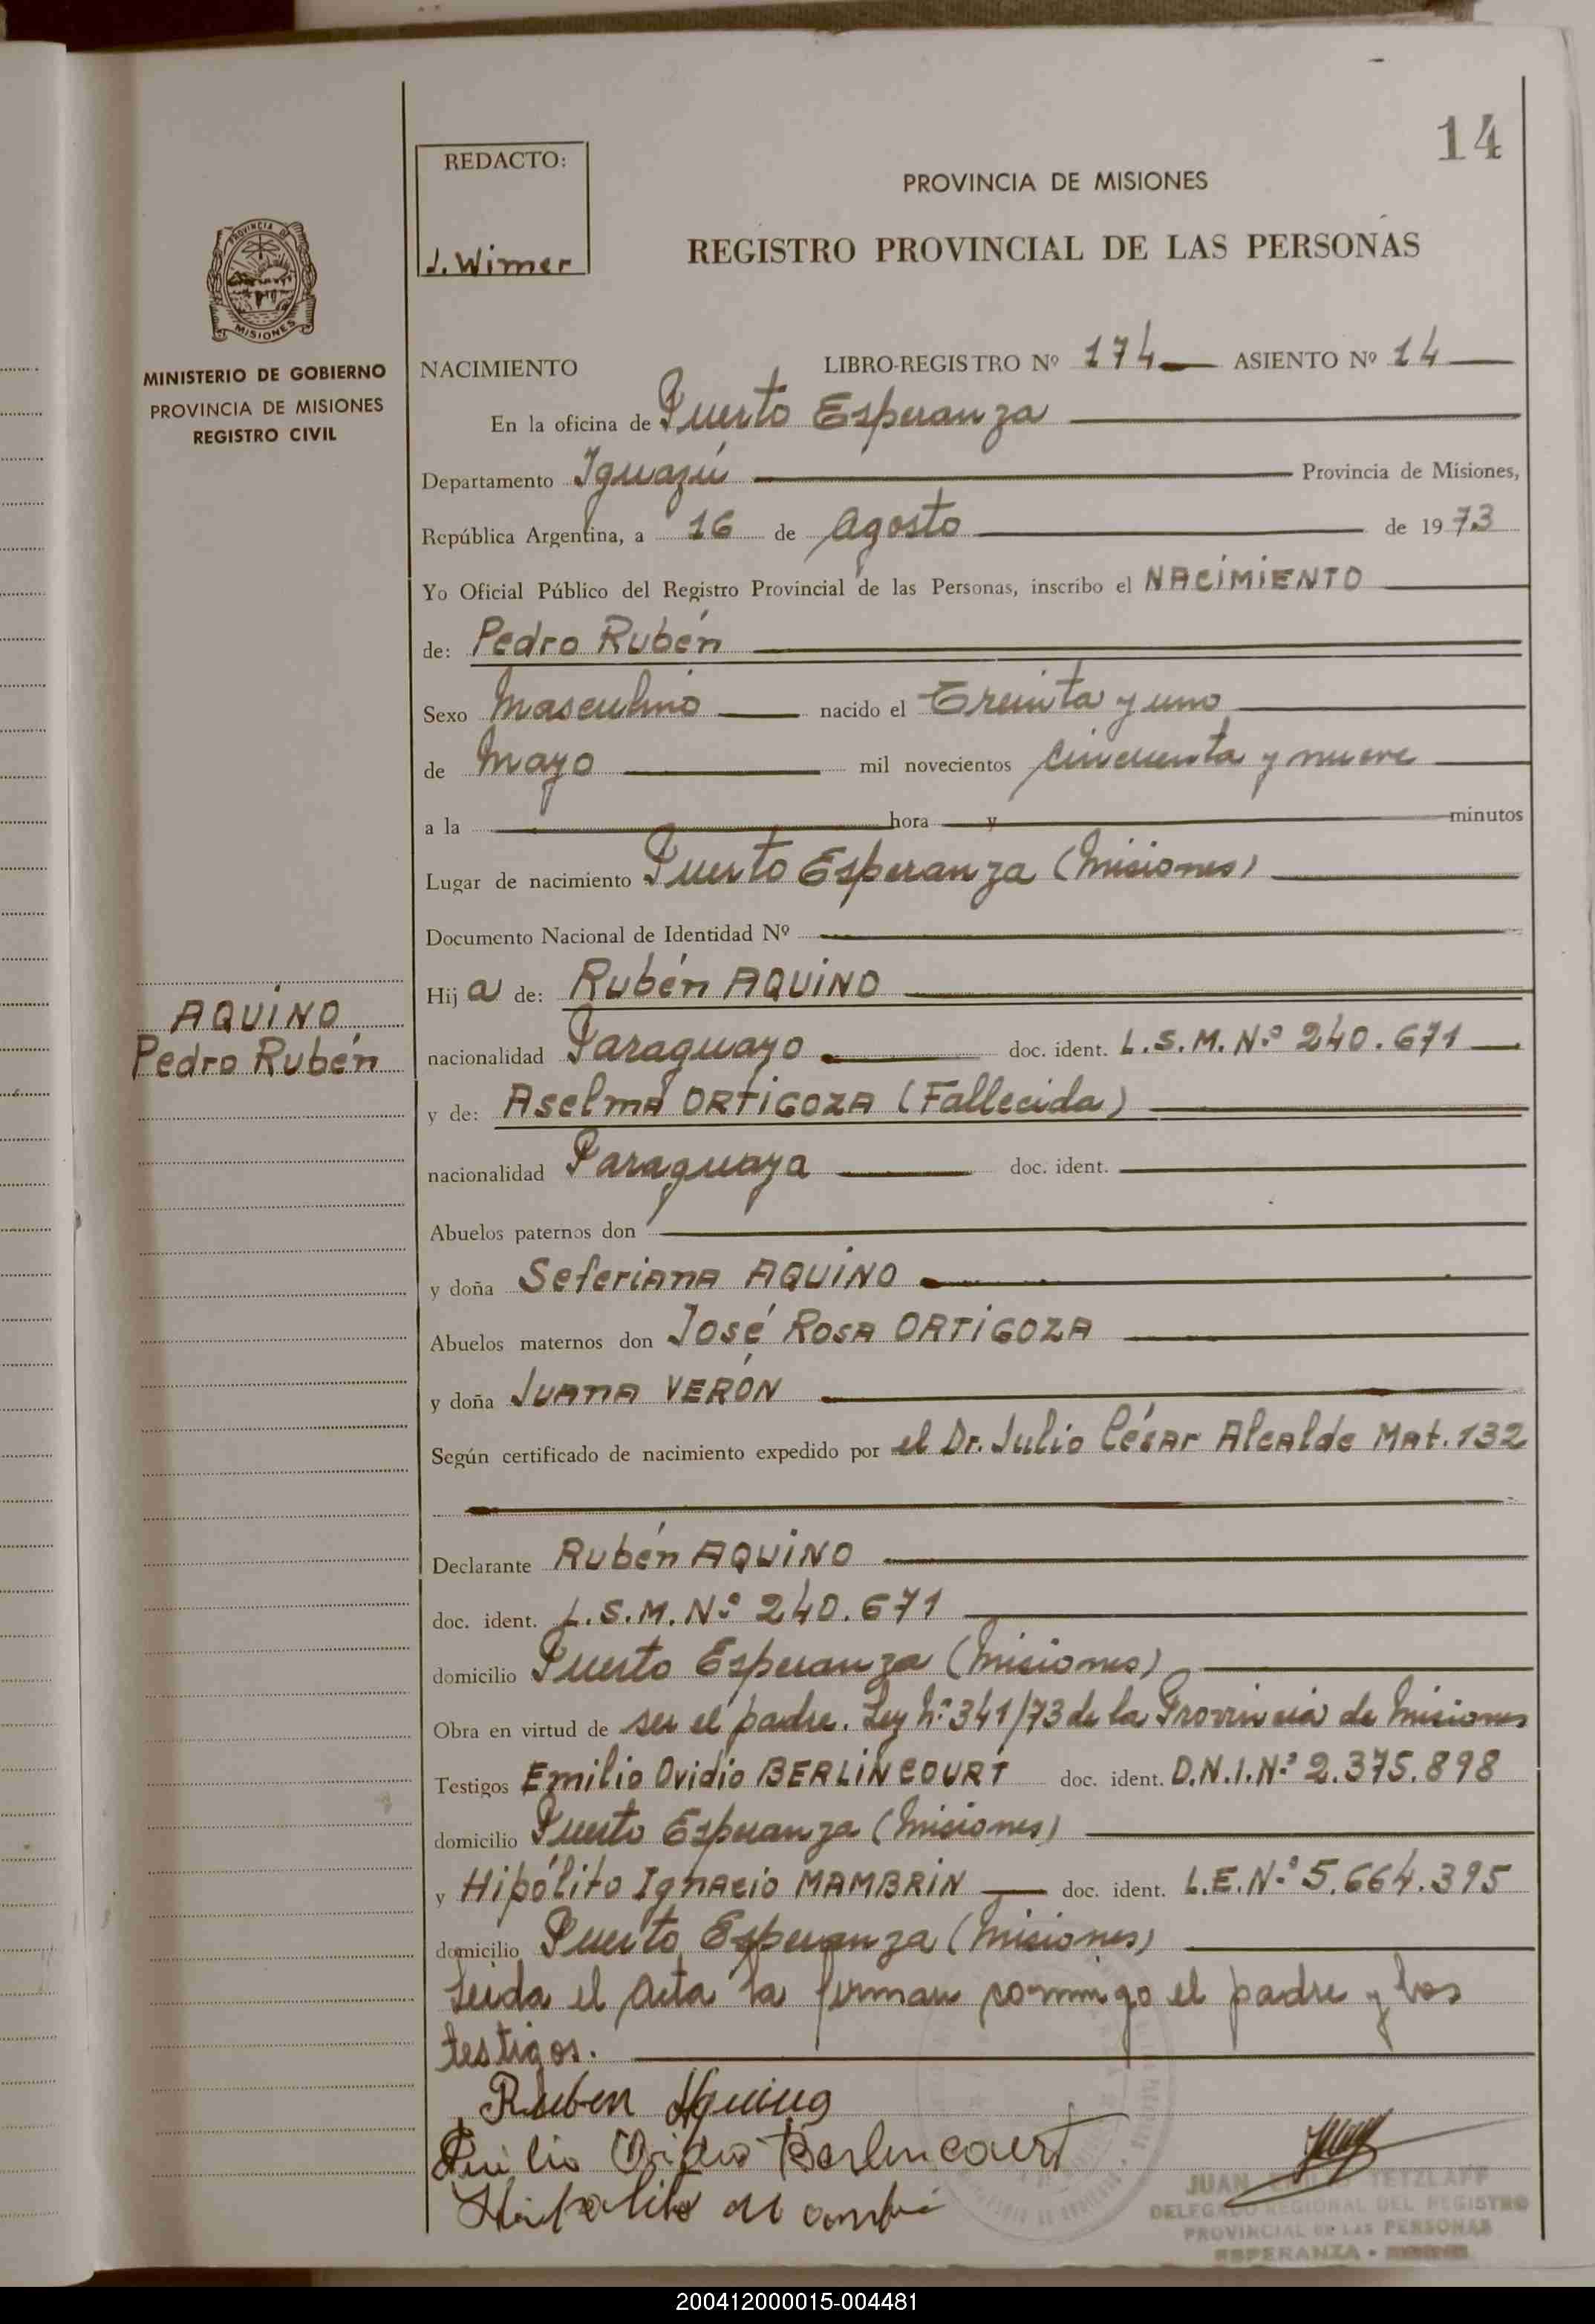 14
REDACTO:
J. Wimer
PROVINCIA DE MISIONES
REGISTRO PROVINCIAL DE LAS PERSONAS
PROVINCIA DE
MISIONES
MINISTERIO DE GOBIERNO
PROVINCIA DE MISIONES
REGISTRO CIVIL
NACIMIENTO LIBRO-REGISTRO Nº 174 ASIENTO Nº 14
En la oficina de Puerto Esperanza
Departamento Iguazú Provincia de Misiones,
República Argentina, a 16 de Agosto de 1973
Yo Oficial Público del Registro Provincial de las Personas, inscribo el NACIMIENTO
de: Pedro Rubén
Sexo Masculino nacido el Treinta y uno
de Mayo mil novecientos cincuenta y nueve
a la hora y minutos
Lugar de nacimiento Puerto Esperanza (Misiones)
Documento Nacional de Identidad Nº
AQUINO
Pedro Rubén
Hij a de: Rubén AQUINO
nacionalidad Paraguayo doc. ident. L.S.M. Nº 240.671
y de: Aselma ORTIGOZA (Fallecida)
nacionalidad Paraguaya doc. ident.
Abuelos paternos don
y doña Seferiana AQUINO
Abuelos maternos don José Rosa ORTIGOZA
y doña Juana VERÓN
Según certificado de nacimiento expedido por el Dr. Julio César Alcalde Mat. 132
Declarante Rubén AQUINO
doc. ident. L.S.M. Nº 240.671
domicilio Puerto Esperanza (Misiones)
Obra en virtud de ser el padre. Ley Nº 341/73 de la Provincia de Misiones
Testigos Emilio Ovidio BERLINCOURT doc. ident. D.N.I. Nº 2.375.898
domicilio Puerto Esperanza (Misiones)
y Hipólito Ignacio MAMBRIN doc. ident. L.E. Nº 5.664.395
domicilio Puerto Esperanza (Misiones)
Leida el Acta la firman conmigo el padre y los
testigos.
Ruben Aquino
Emilio Ovidio Berlincourt
Hipolito Mambri
JUAN TETZLAFF
DELEGADO REGIONAL DEL REGISTRO
PROVINCIAL DE LAS PERSONAS
ESPERANZA -
200412000015-004481